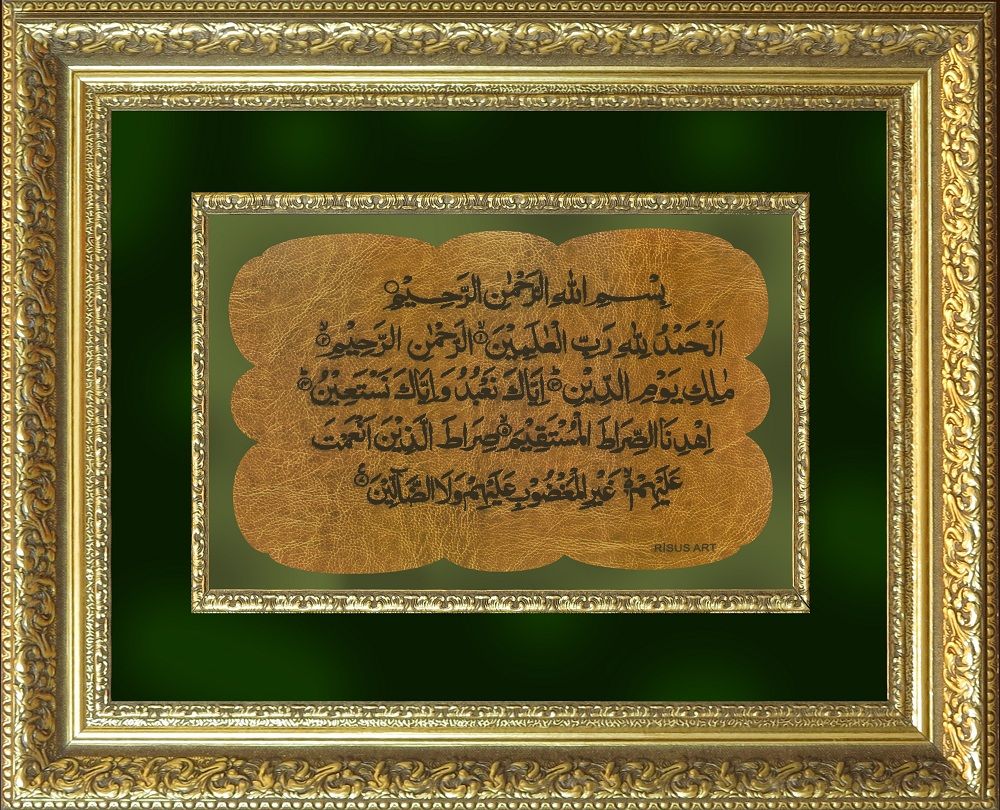 بِسْمِ اللهِ الرَّحْمٰنِ الرَّحِيْمِ
اَلْحَمْدُ لِلّٰهِ رَبِّ الْعٰلَمِيْنَ ۙ﴿۱﴾ الرَّحْمٰنِ الرَّحِيْمِ ۙ﴿۲﴾
مٰلِكِ يَوْمِ الدِّيْنِ ؕ﴿۳﴾ اِيَّاكَ نَعْبُدُ وَاِيَّاكَ نَسْتَعِيْنُ ؕ﴿۴﴾
اِهْدِنَا الصِّرَاطَ الْمُسْتَقِيْمَ ۙ﴿۵﴾ صِرَاطَ الَّذِيْنَ اَنْعَمْتَ
عَلَيْهِمْ ۙ۬ غَيْرِ الْمَغْضُوْبِ عَلَيْهِمْ وَلَا الضَّآلِّيْنَ
RİSUS ART